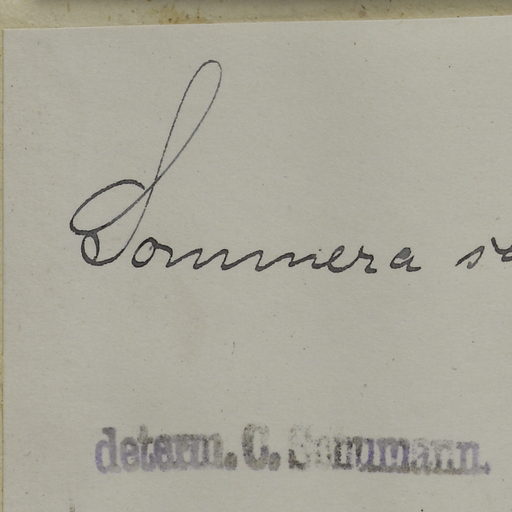 Sommera
determ. C. Schumann.